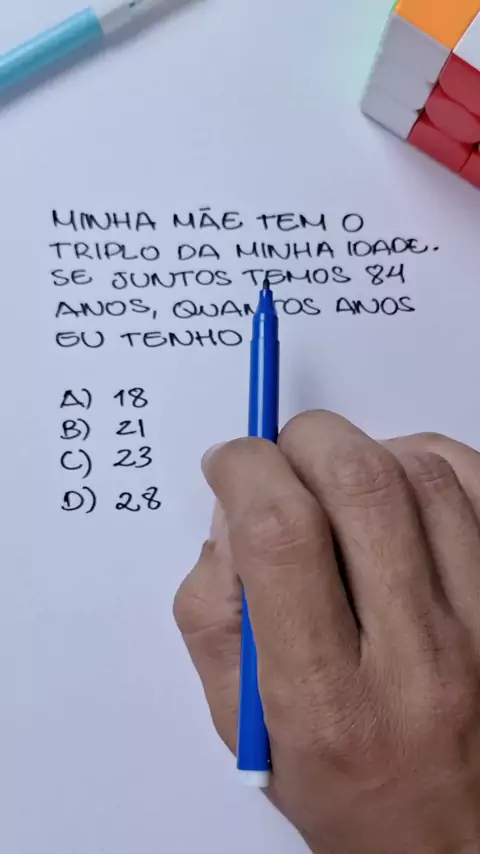 MINHA MÃE TEM O
TRIPLO DA MINHA IDADE.
SE JUNTOS TEMOS 84
ANOS, QUANTOS ANOS
EU TENHO
A) 18
B) 21
C) 23
D) 28